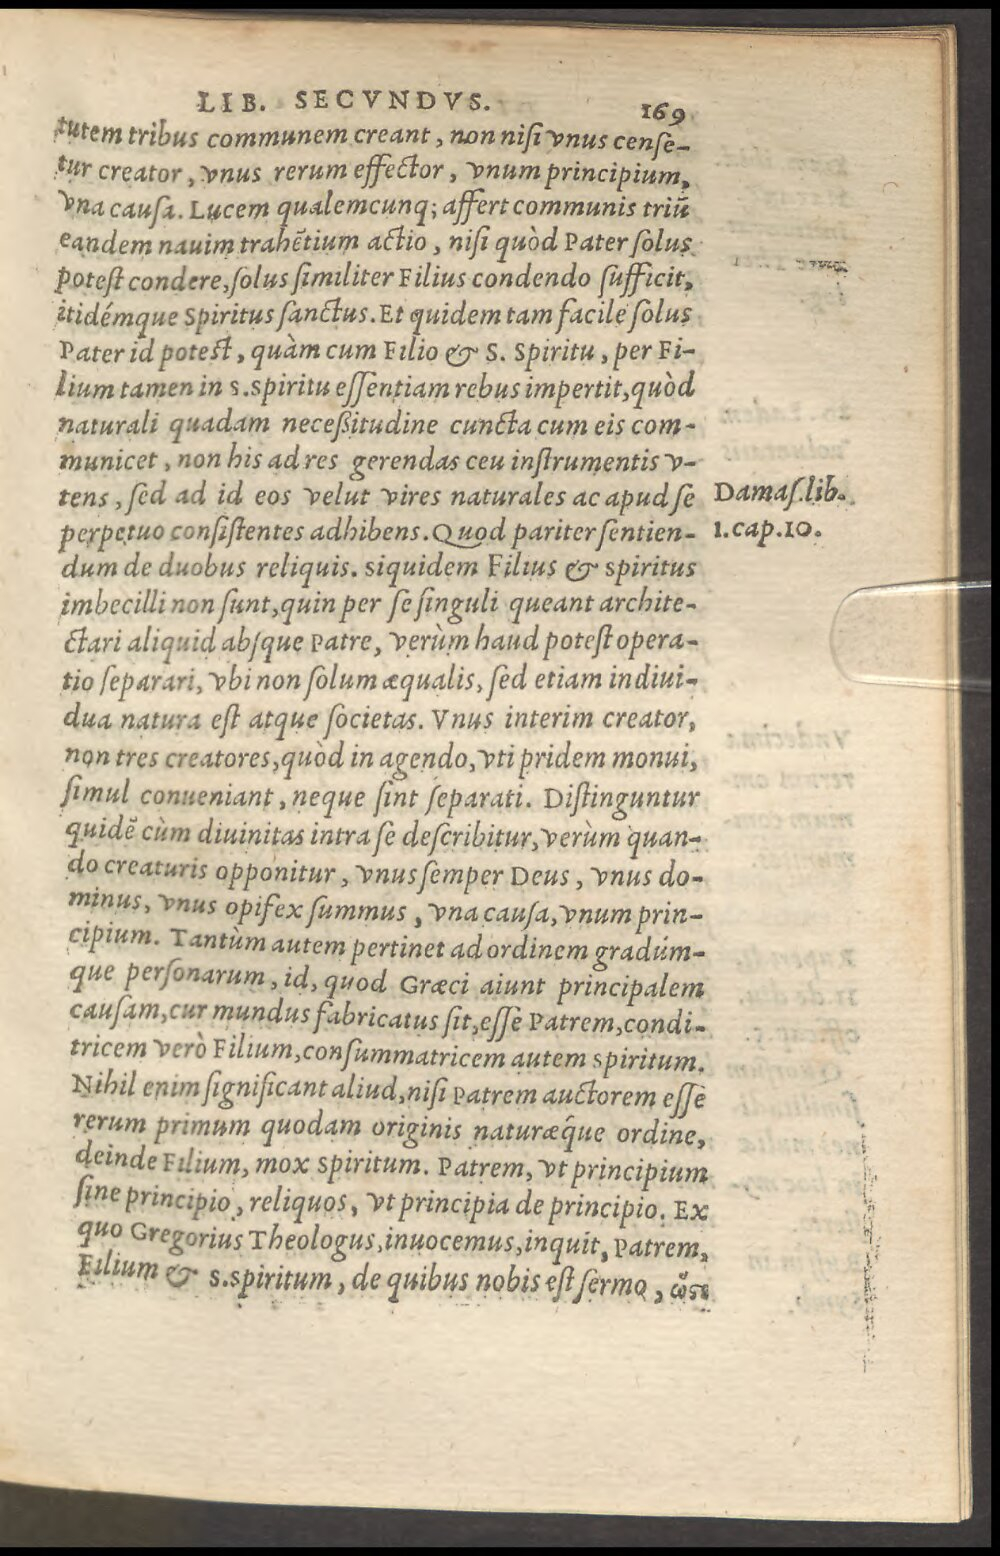 LIB. SECVNDVS. 169
tutem tribus communem creant, non nisi vnus cense-
tur creator, vnus rerum effector, vnum principium,
vna causa. Lucem qualemcunq; affert communis triũ
eandem nauim trahẽtium actio, nisi quòd Pater solus
potest condere, solus similiter Filius condendo sufficit,
itidémque Spiritus sanctus. Et quidem tam facile solus
Pater id potest, quàm cum Filio & S. Spiritu, per Fi-
lium tamen in S. Spiritu essentiam rebus impertit, quòd
naturali quadam neceßitudine cuncta cum eis com-
municet, non his ad res gerendas ceu instrumentis v-
tens, sed ad id eos velut vires naturales ac apud se
perpetuo consistentes adhibens. Quod pariter sentien-
dum de duobus reliquis. siquidem Filius & Spiritus
imbecilli non sunt, quin per se singuli queant archite-
ctari aliquid absque Patre, verùm haud potest opera-
tio separari, vbi non solum æqualis, sed etiam indiui-
dua natura est atque societas. Vnus interim creator,
non tres creatores, quòd in agendo, vti pridem monui,
simul conueniant, neque sint separati. Distinguntur
quidẽ cùm diuinitas intra se describitur, verùm quan-
do creaturis opponitur, vnus semper Deus, vnus do-
minus, vnus opifex summus, vna causa, vnum prin-
cipium. Tantùm autem pertinet ad ordinem gradúm-
que personarum, id, quod Græci aiunt principalem
causam, cur mundus fabricatus sit, esse Patrem, condi-
tricem verò Filium, consummatricem autem Spiritum.
Nihil enim significant aliud, nisi Patrem auctorem esse
rerum primum quodam originis naturæq́ue ordine,
deinde Filium, mox Spiritum. Patrem, vt principium
sine principio, reliquos, vt principia de principio. Ex
quo Gregorius Theologus, inuocemus, inquit, Patrem,
Filium & S. Spiritum, de quibus nobis est sermo,
Damas. lib.
1. cap. 10.